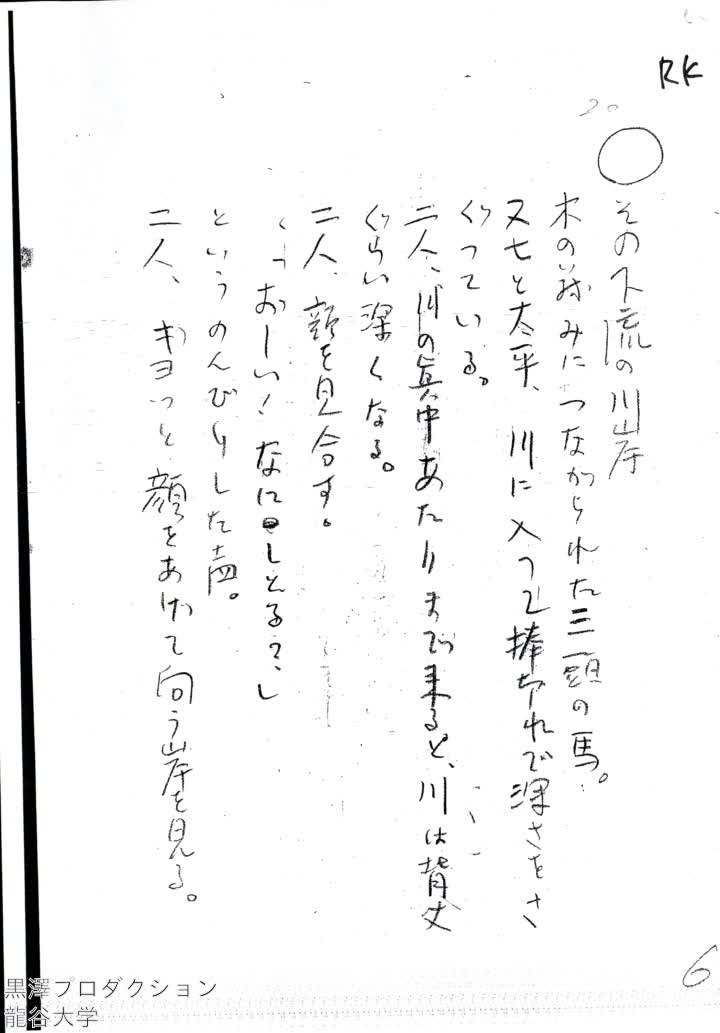 RK
20
○ その下流の川岸
木の茂みにつながられた三頭の馬。
又七と太平、川に入って棒切れで深さをさ
ぐっている。
二人、川の真中あたりまで来ると、川は背丈
ぐらい深くなる。
二人、顔を見合す。
「おーい！なにしとる？」
というのんびりした声。
二人、キョッと顔をあげて向う岸を見る。
6
黒澤プロダクション
龍谷大学